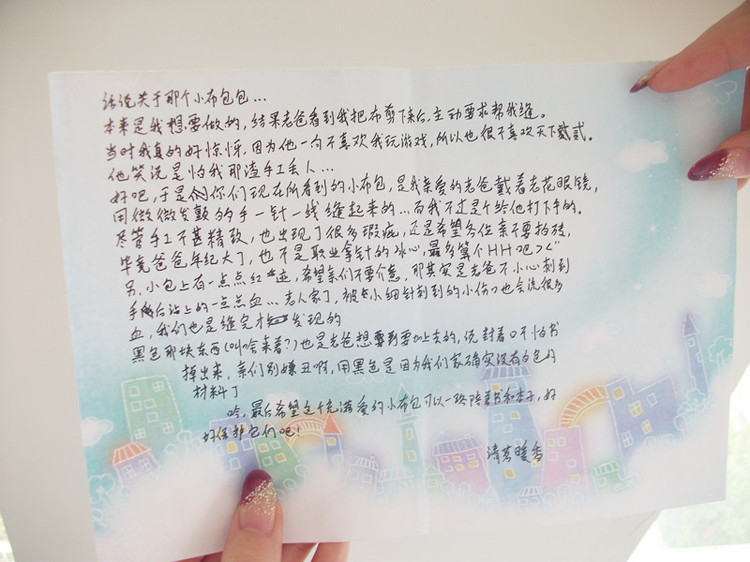 话说关于那个小布包包…
本来是我想要做的，结果老爸看到我把布剪下来后，主动要求帮我缝。
当时我真的好惊讶，因为他一向不喜欢我玩游戏，所以也很不喜欢天下贰贰。
他笑说是怕我那渣手工丢人…
好吧，于是你们现在所看到的小布包，是我亲爱的老爸戴着老花眼镜，
用微微发颤的手一针一线缝起来的…而我不过是个给他打下手的。
尽管手工不甚精致，也出现了很多瑕疵，还是希望各位亲不要拍砖，
毕竟爸爸年纪大了，也不是职业拿针的冰心，最多算个HH吧><"
另，小包上有一点点红迹，希望亲们不要介意，那其实是老爸不小心刺到
手后沾上的一点点血…老人家了，被小细针刺到的小伤口也会流很多
血，我们也是缝完才发现的
黑色那块东西(叫啥来着?)也是老爸想要到要加上去的，说封着口不怕书
掉出来，亲们别嫌丑啊，用黑色是因为我们家确实没有白色的
材料了
哈，最后希望这个充满爱的小布包可以一路陪着书和本子，好
好保护它们吧！
清茗暖香